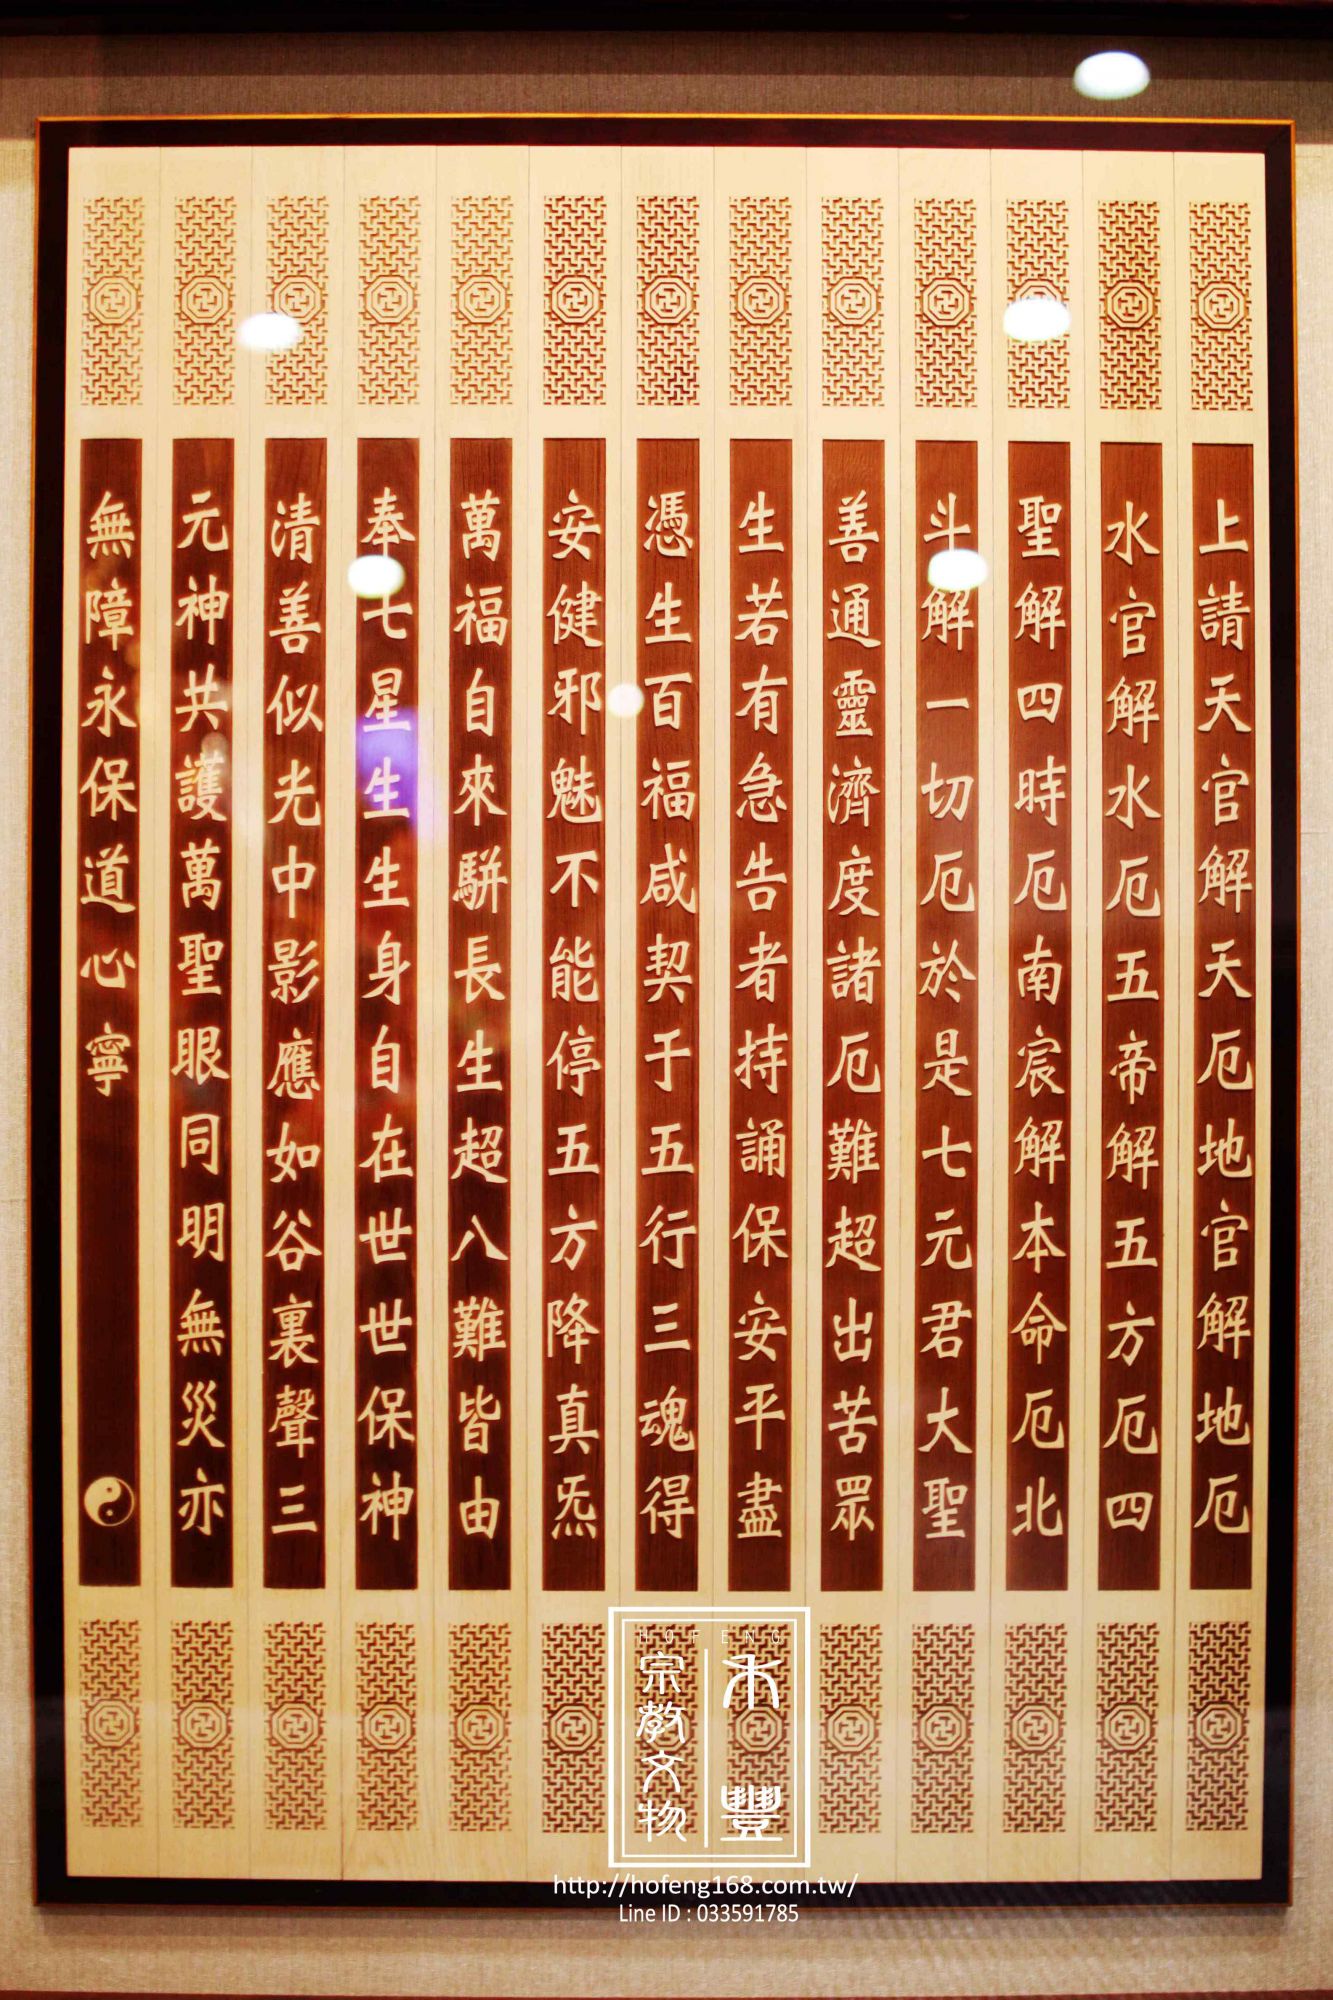 上請天官解天厄地官解地厄
水官解水厄五帝解五方厄四
聖解四時厄南宸解本命厄北
斗解一切厄於是七元君大聖
善通靈濟度諸厄難超出苦眾
生若有急告者持誦保安平盡
憑生百福咸契于五行三魂得
安健邪魅不能停五方降真炁
萬福自來駢長生超八難皆由
奉七星生生身自在世世保神
清善似光中影應如谷裏聲三
元神共護萬聖眼同明無災亦
無障永保道心寧
HOFENG
禾豐
宗教文物
http://hofeng168.com.tw/
Line ID : 033591785